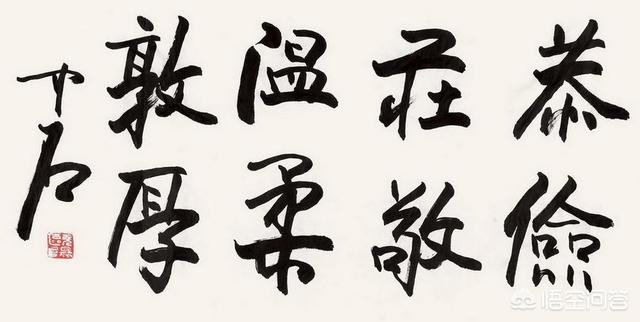 恭儉
莊敬
温柔
敦厚
中石
悟空问答